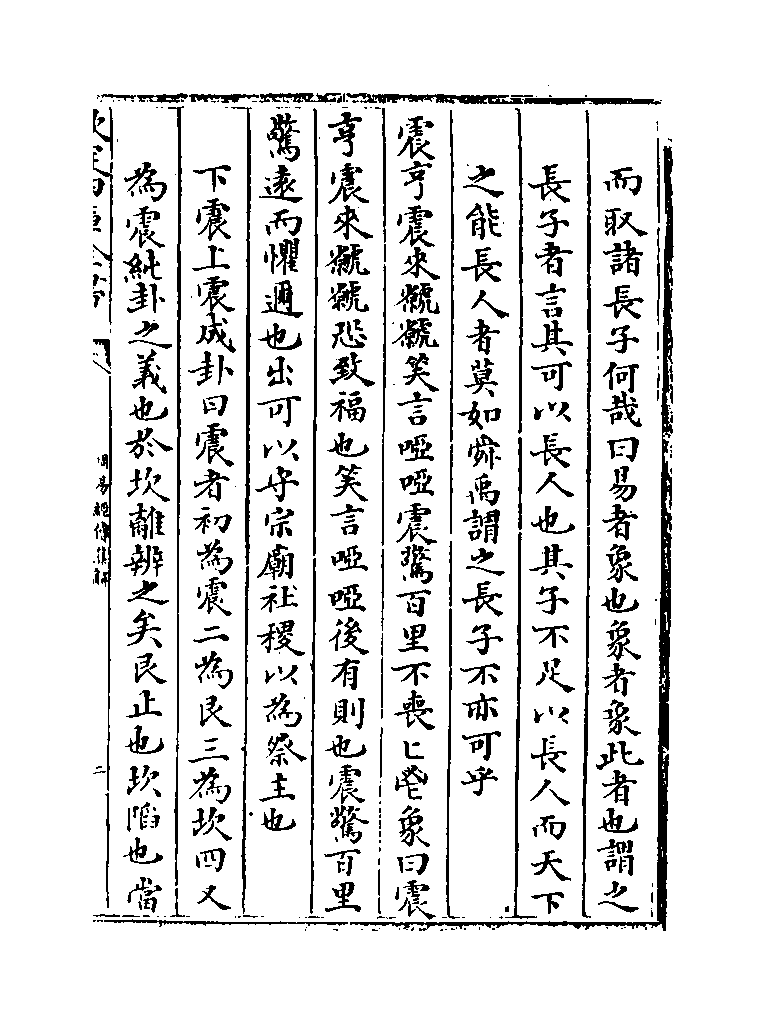 而取諸長子何哉曰易者象也象者象此者也謂之
長子者言其可以長人也其子不足以長人而天下
之能長人者莫如舜禹謂之長子不亦可乎
震亨震來虩虩笑言啞啞震驚百里不喪匕鬯彖曰震
亨震來虩虩恐致福也笑言啞啞後有則也震驚百里
驚遠而懼邇也出可以守宗廟社稷以為祭主也
下震上震成卦曰震者初為震二為艮三為坎四又
為震純卦之義也於坎離辨之矣艮止也坎陷也當
欽定四庫全書
周易經傳集解
二